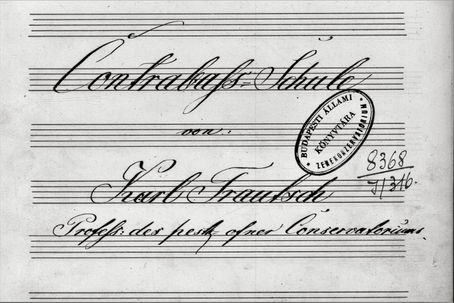 Contrabaſs-Schule
von:
Karl Trautsch
Profeſs: des pest ofner Conservatoriums.
BUDAPESTI ÁLLAMI
KÖNYVTÁRA
ZENEKONZERVATÓRIUM
8368
J/316.